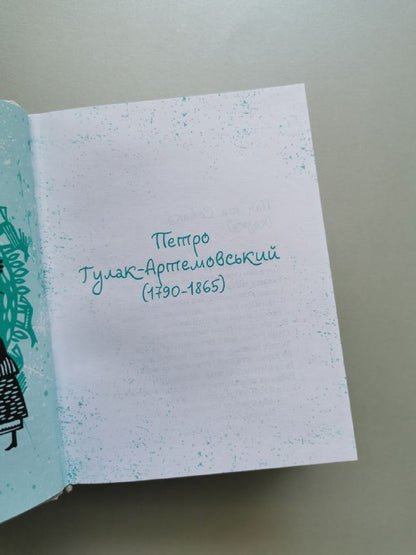 Петро
Гулак-Артемовський
(1790-1865)